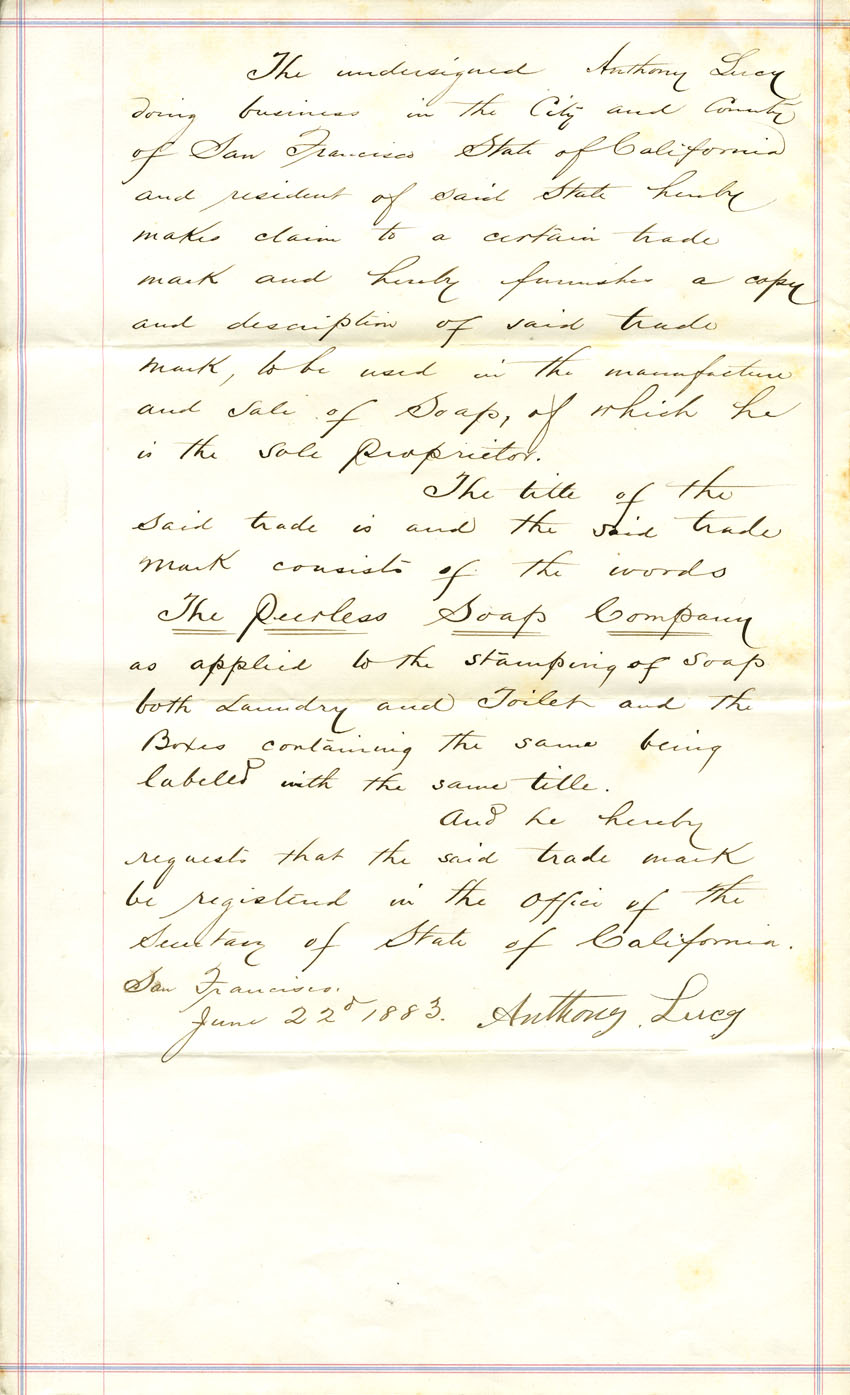 The undersigned Anthony Lucy
doing business in the City and County
of San Francisco State of California
and resident of said State hereby
makes claim to a certain trade
mark and hereby furnishes a copy
and description of said trade
mark, to be used in the manufacture
and sale of Soap, of which he
is the sole proprietor.
The title of the
said trade is and the said trade
mark consists of the words
The Peerless Soap Company
as applied to the stamping of soap
both Laundry and Toilet and the
Boxes containing the same being
labelled with the same title.
And he hereby
requests that the said trade mark
be registered in the office of the
Secretary of State of California.
San Francisco.
June 22d 1883. Anthony Lucy